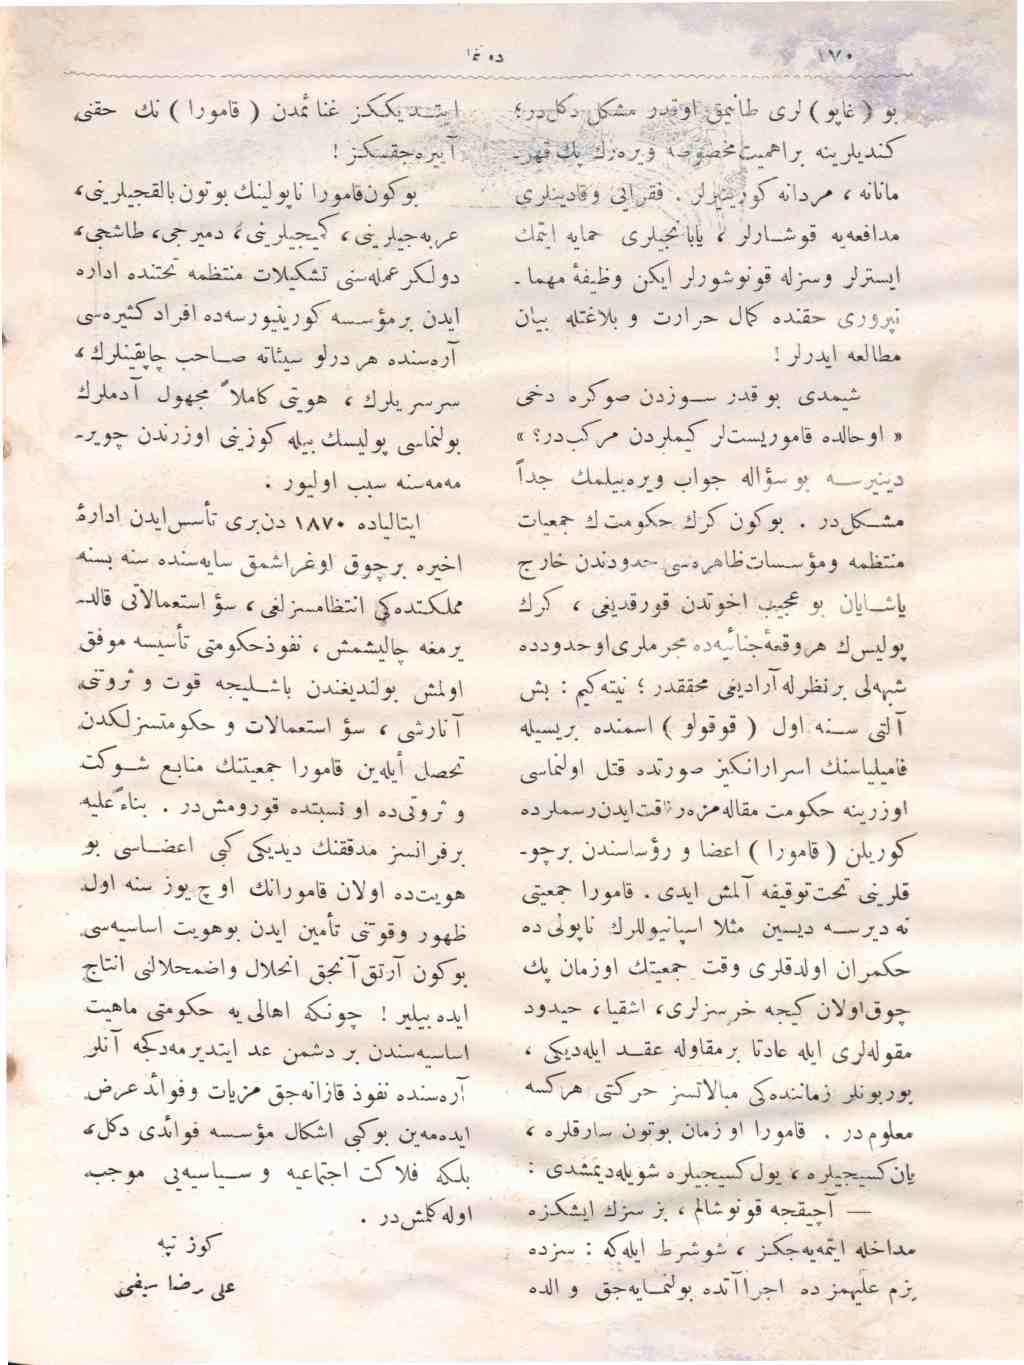 ١٧٠
بو (غاپو) لری طانیمق اوقدر مشكل دكلدر؛
كندیلرینه براهمیت مخصوصه ویره‌رك پك قهر‌ـ
مانانه ، مردانه كورینیرلر . فقرایی وقادینلری
مدافعه‌یه قوشـارلر ، یابانجیلری حمایه ایتمك
ایسترلر وسزله قونوشورلر ایكن وظیفهٔ مهما‌ـ
نپروری حقنده كمال حرارت و بلاغتله بیان
مطالعه ایدرلر !
شیمدی بو قدر سـوزدن صوكره دخی
« اوحالده قاموریست‌لر كیملردن مركبدر؟ »
دینیرسـه بو سؤاله جواب ویره‌بیلمك جداً
مشـكل‌در . بوكون كرك حكومت‌ك جمعیات
منتظمه ومؤسـسات ظاهره‌سی حدودندن خارج
یاشـایان بو عجیب اخوتدن قورقدیغی ، كرك
پولیس‌ك هروقعهٔ جنائیه‌ده مجرملری اوحدودده
شبهه‌لی برنظرله آرادیغی محققدر ؛ نیته‌كیم : بش
آلتی سـنه اول (قوقولو) اسمنده بریسیله
فامیلیاسنك اسرارانكیز صورتده قتل اولنماسی
اوزرینه حكومت مقاله‌مزه رفاقت ایدن رسملرده
كوریلن (قامورا) اعضا و رؤساسندن برچو‌ـ
قلرینی تحت توقیفه آلمش ایدی . قامورا جمعیتی
نه دیرسـه دیسین مثلا اسپانیوللرك ناپولی ده
حكمران اولدقلری وقت جمعیتك اوزمان پك
چوق اولان كیجه خرسزلری، اشقیا، حیدود
مقوله‌لری ایله عادتا بر مقاوله عقـد ایله‌دیكی ،
بوربونلر زماننده‌كی مبالاتسز حركتی هركسه
معلوم در . قامورا او زمان بوتون سارقلره ،
یان كسیجیلره ، یول كسیجیلره شویله‌دیمشدی :
— آچیقجه قونوشالم ، بز سزك ایشكزه
مداخله ایتمه‌یه‌جكز ، شو شرط ایله‌كه : سزده
بزم علیهمزده اجراآتده بولنمـایه‌جق و الده
ایتـدیككز غنائمدن (قامورا) نك حقنی
آییره‌جقسكز !
بوكون قامورا ناپولینك بوتون بالقجیلرینی،
عربه‌جیلرینی ، كمیجیلرینی ، دمیرجی، طاشجی،
دولكر عمله‌سنی تشكیلات منتظمه تحتنده اداره
ایدن برمؤسسه كورینیورسه‌ده افراد كثیره‌سی
آره‌سنده هر درلو سیئاته صـاحب چاپقینلرك ،
سرسریلرك ، هویتی كاملاً مجهول آدملرك
بولنماسی پولیسك بیله كوزینی اوزرندن چویر‌ـ
مه‌مه‌سنه سبب اولیور .
ایتالیاده ١٨٧٠ دن‌بری تأسس ایدن ادارهٔ
اخیره برچوق اوغراشمق سایه‌سنده سنه بسنه
مملكتده‌كی انتظامسزلغی ، سؤ استعمالاتی قالد‌ـ
یرمغه چالیشمش ، نفوذ حكومتی تأسیسه موفق
اولمش بولندیغندن باشـلیجه قوت و ثروتنی
آنارشی ، سؤ استعمالات و حكومتسزلكدن
تحصل أیله‌ین قامورا جمعیتنك منابع شـوكت
و ثروتی‌ده او نسبتده قورومش‌در . بناءً علیه
برفرانسز مدققنك دیدیكی كبی اعضـاسی بو
هویت‌ده اولان قامورانك اوچ یوز سنه اول
ظهور وقوتنی تأمین ایدن بوهویت اساسیه‌سی
بوكون آرتق آنجق انحلال واضمحلالنی انتاج
ایده بیلیر ! چونكه اهالی یه حكومتی ماهیت
اساسیه‌سندن بر دشمن عد ایتدیرمه‌دكجه آنلر
آره‌سنده نفوذ قازانه‌جق مزیات وفوائد عرض
ایده‌مه‌ین بوكبی اشكال مؤسسه فوائدی دكل ،
بلكه فلاكت اجتماعیه و سـیاسیه‌یی موجب
اوله كلمش‌در .
كوز تپه
علی رضا سیفی